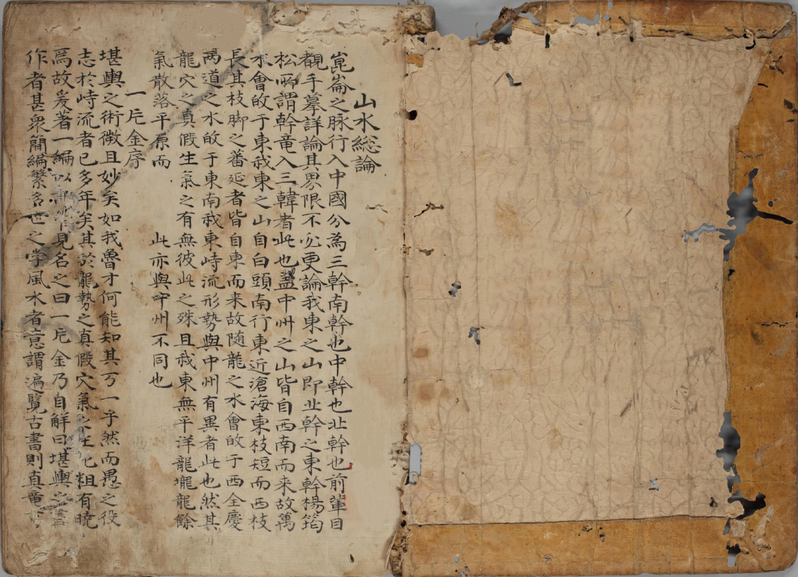 山水総論
崑崙之脉行入中國分為三幹南幹也中幹也北幹也前輩目
觀手摹詳論其界限不必更論我東之山即北幹之東幹楊筠
松所謂幹竜入三韓者此也盖中州之山皆自西南而来故萬
水會皈于東我東之山自白頭南行東近滄海東枝短而西枝
長其枝脚之蕃延者皆自東而来故随龍之水會皈于西全慶
两道之水皈于東南我東峙流形勢與中州有異者此也然其
龍穴之真假生氣之有無彼此之殊且我東無平洋龍壠龍餘
氣散落平原而 此亦與中州不同也
一片金序
堪輿之術微且妙矣如我魯才何能知其万一乎然而愚之役
志於峙流者已多年矣其於龍勢之真假穴氣之生死粗有曉
焉故爰著一編以 管見名之曰一片金乃自解曰堪輿之書
作者甚衆簡編繁多世之学風水者意謂遍覧古書則真竜